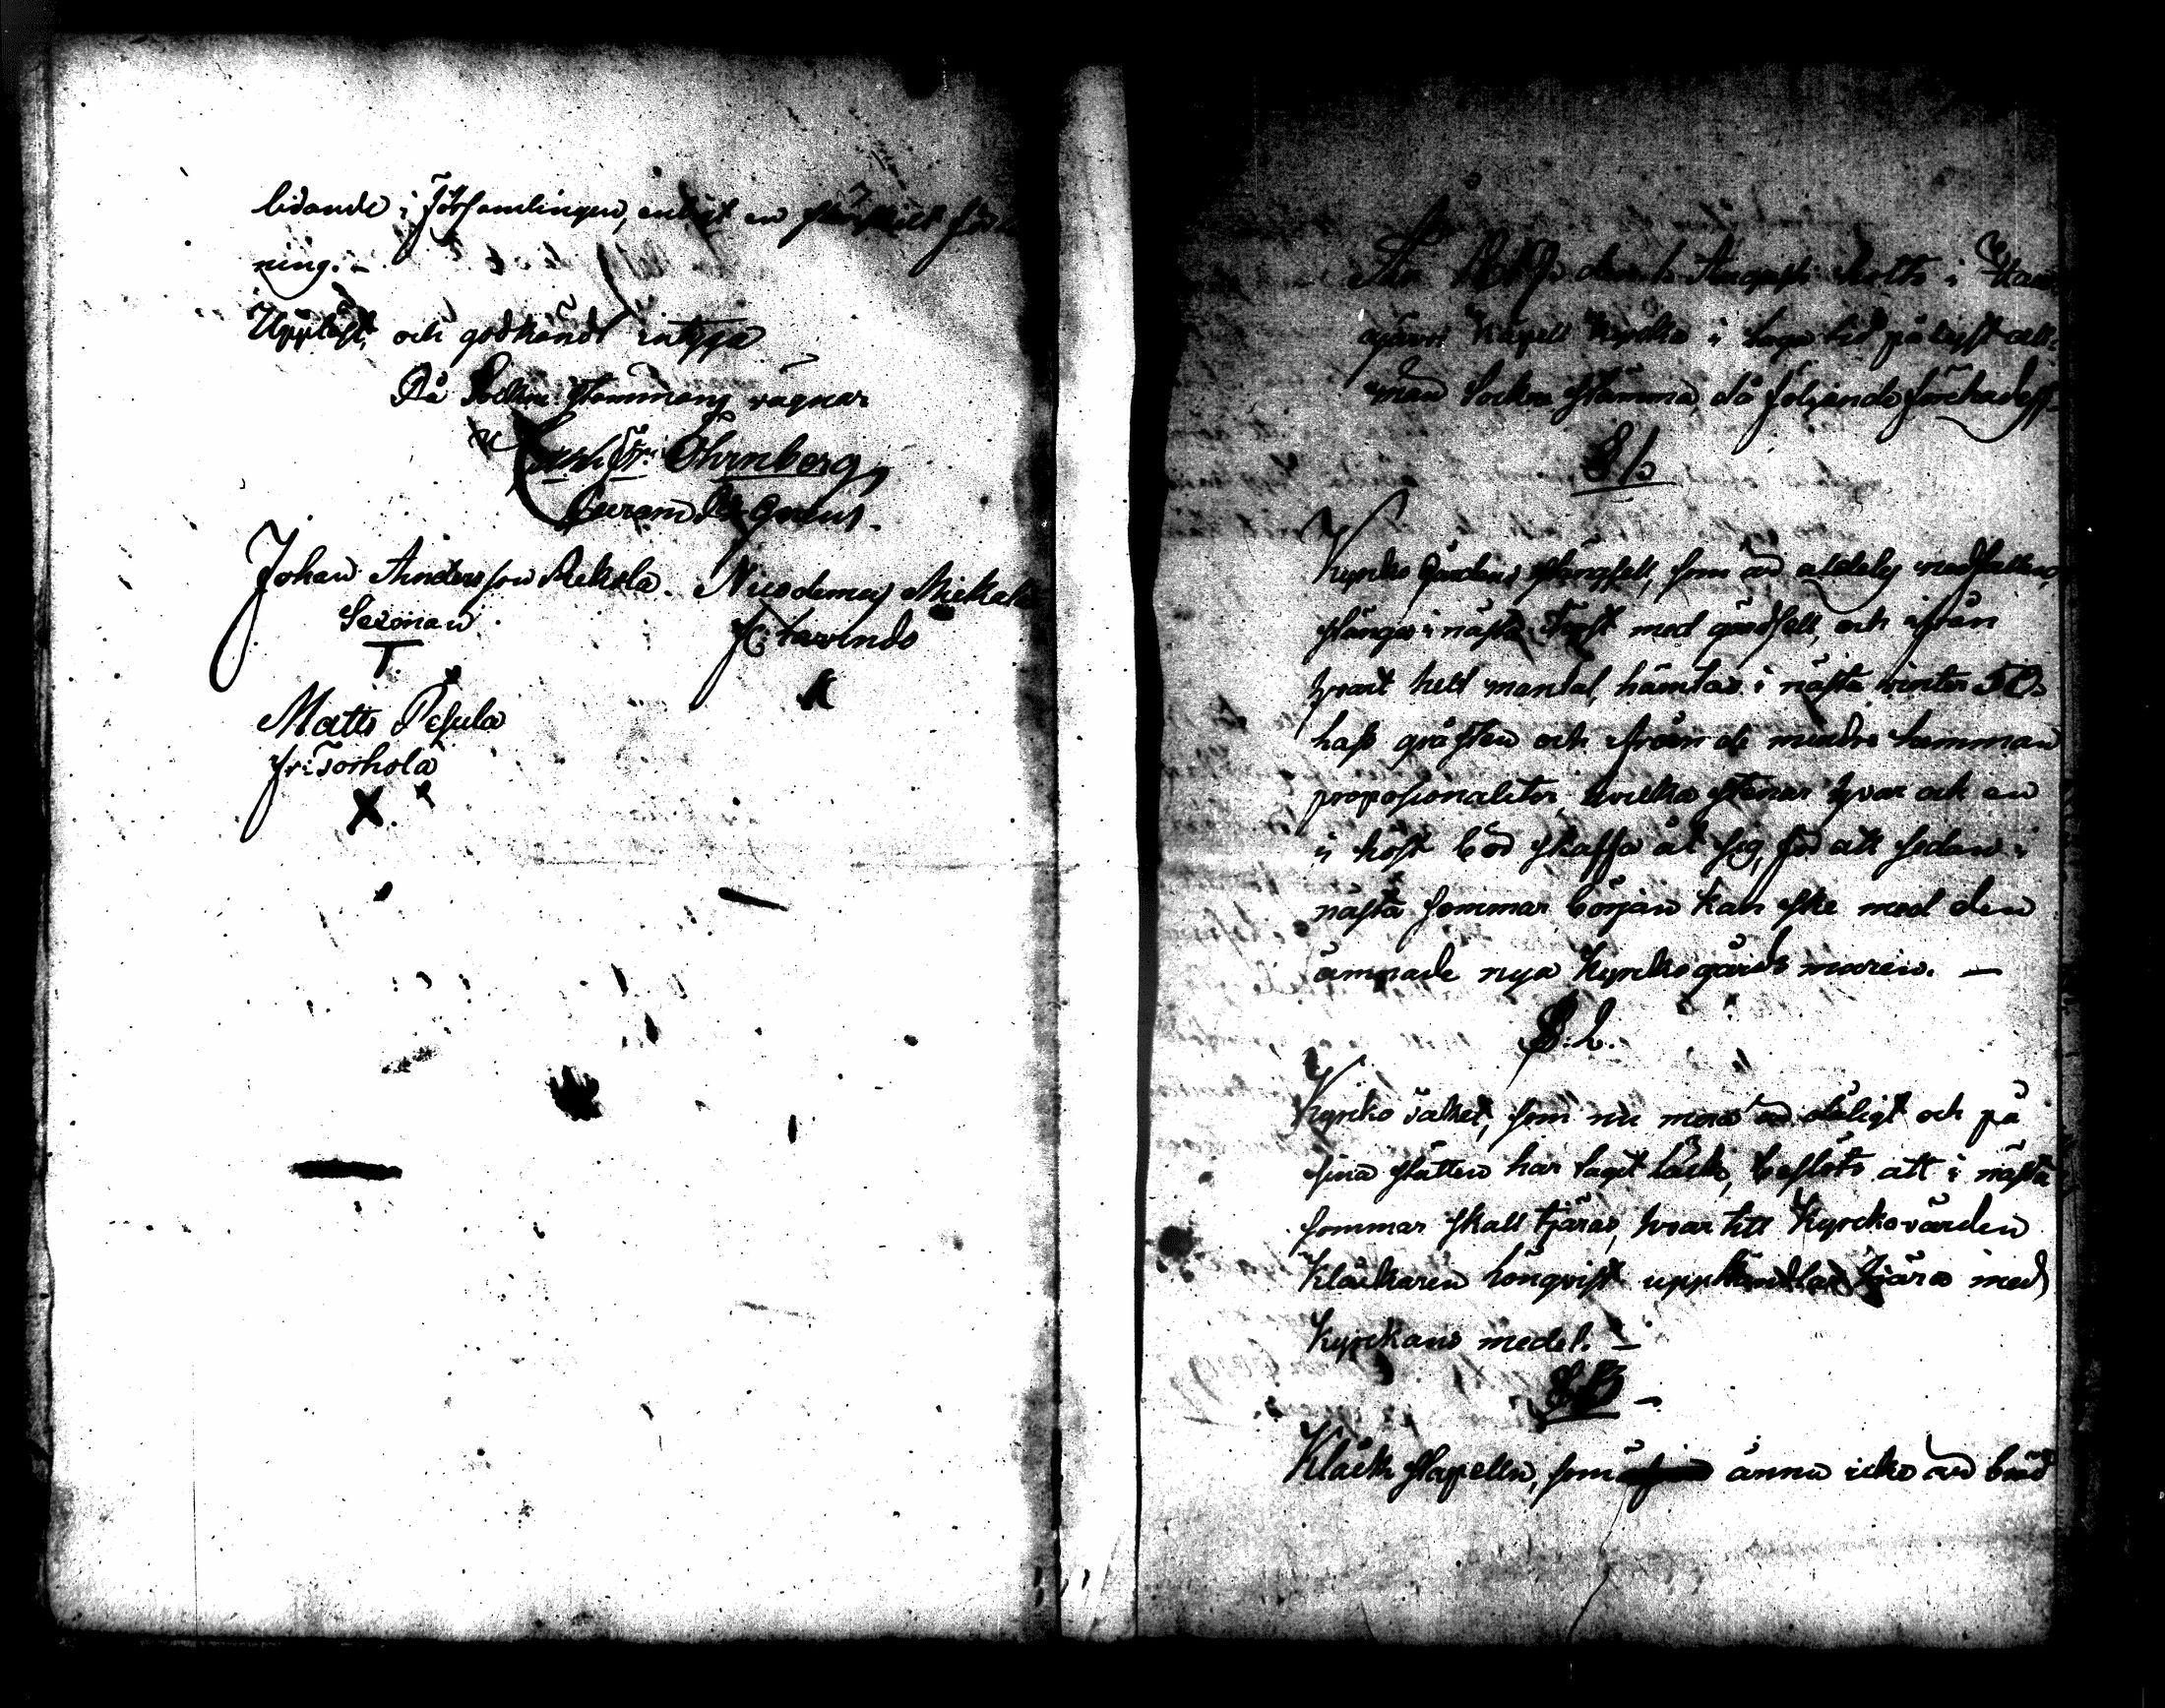 lidande i Församlingen, enligt en särskilt
ning. -
Uppläst och godkändt intyga
På Sockne stämmans vägnar
Öhrnberg
Johan Andersson Rekola. Nicodemus Mickels
Sexman
T
Matts Pesula
fr: Torhola
X.
den 1. Augusti holts i
Kapell Kyrka i laga tid pålyst all-
män Sockne stämma, då följande förehades
§ 1.
Kyrko gårdens stängsel, som är aldeles nedfallen,
stänges i nästa höst med gärdsel, och ifrån
hvart helt mantal, hämtas i nästa vinter 50.
lass gråsten och från de mindre hemman
proportionaliter, hvilka stenar hvar och en
i höst bör skaffa åt sig, för att sedan i
nästa sommar början kan ske med den
ämnade nya Kyrkogårds muren. —
§. 2.
Kyrko taket, som nu mera är dåligt och på
sina ställen har tagit läcka, beslöts att i nästa
sommar skall tjäras, hvar till Kyrkovärden
Klåckaren Lönqvist upphandlar tjära med
Kyrkans medel. —
§ 3 —
Klåck stapeln, som ännu icke är bräd